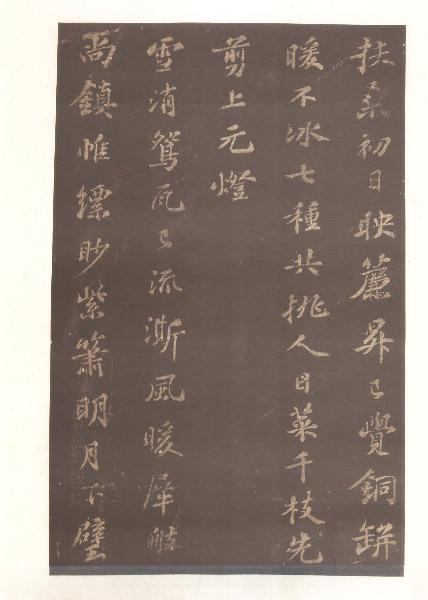 扶桑初日映簾昇已覺銅缾
暖不冰七種共挑人日菜千枝先
剪上元燈
雪消鴛瓦已流澌風暖犀䰀
尚鎮帷縹眇紫簫明月下璧